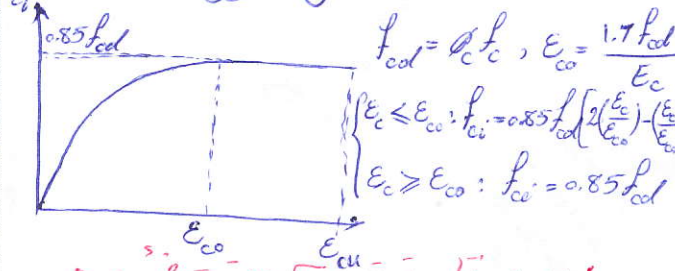 0.85f_cd
f_cd = φ_c f_c , ε_co = 1.7f_cd / E_c
ε_c ≤ ε_co : f_ci = 0.85f_cd [2(ε_c/ε_co) - (ε_c/ε_co
ε_c ≥ ε_co : f_ci = 0.85f_cd
ε_co ε_cu